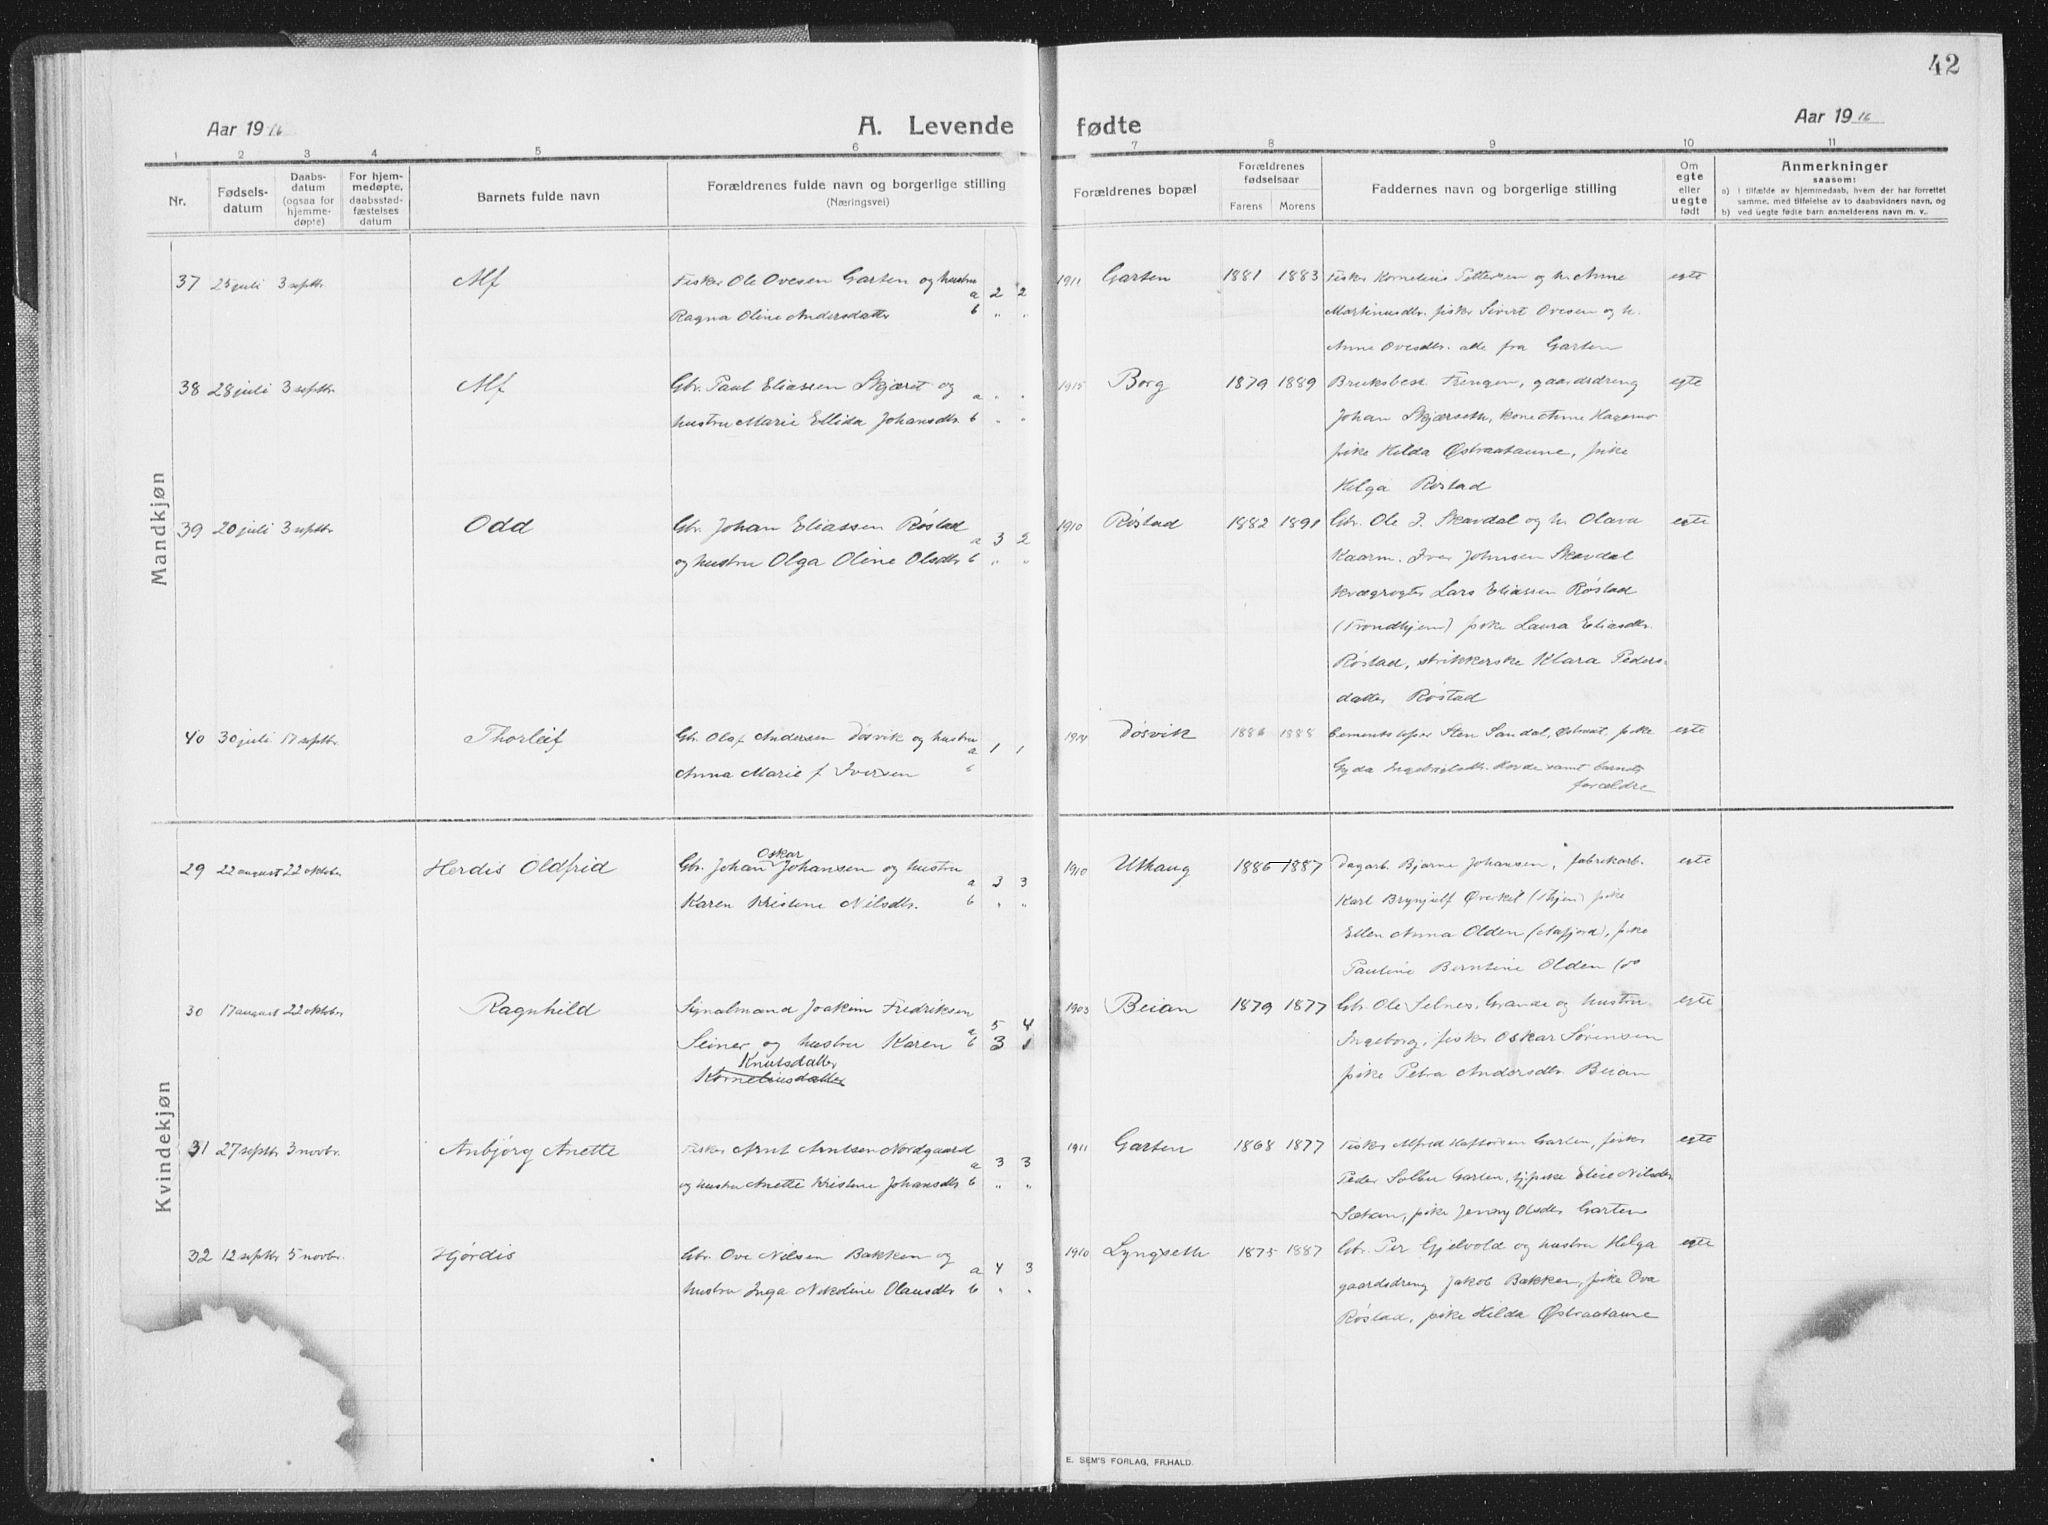 42
Aar 1916 A. Levende fødte Aar 1916
1 2 3 4 5 6 7 8 9 10 11
Nr. Fødsels-datum Daabs-datum (ogsaa for hjemme-døpte) For hjem-medøpte, daabsstad-fæstelses datum Barnets fulde navn Forældrenes fulde navn og borgerlige stilling (Næringsvei) Forældrenes bopæl Forældrenes fødselsaar Farens Morens Faddernes navn og borgerlige stilling Om egte eller uegte født Anmerkninger
saasom:
a) i tilfælde av hjemmedaab, hvem der har forrettet
samme, med tilføielse av to daabsvidners navn, og
b) ved uegte fødte barn anmelderens navn m. v.
Mandkjøn
37 25 juli 3 septbr. Alf Fisker Ole Ovesen Garten og hustru a 2 2 1911 Garten 1881 1883 Fisker Kornelius Pettersen og h. Anne egte
Ragna Oline Andersdatter b " " Martinusdtr. fisker Sivert Ovesen og h.
Anne Ovesdtr. alle fra Garten
38 28 juli 3 septbr. Alf Gbr. Paul Eliassen Skjæret og a " " 1915 Borg 1879 1889 Bruksbest. Frengen, gaardsdreng egte
hustru Marie Ellida Johansdtr. b " " Johan Skjærseth, kone Anne Hagemo
pike Hilda Østraataune, pike
Helga Røstad
39 20 juli 3 septbr. Odd Gbr. Johan Eliassen Røstad a 3 2 1910 Røstad 1882 1891 Gbr. Ole J. Skavdal og h. Olava egte
og hustru Olga Oline Olsdtr. b " " Kaarm. Iver Johnsen Skavdal
kvægrøgter Lars Eliassen Røstad
(Trondhjem) pike Laura Eliasdtr.
Røstad, strikkerske Klara Peders-
datter Røstad
40 30 juli 17 septbr. Thorleif Gbr. Olaf Andersen Døsvik og hustru a 1 1 1914 Døsvik 1886 1888 Cementstøper Sten Sandal, Østraat, pike egte
Anna Marie f. Iversen b Gyda Ingebrigtsdtr. Hovde samt barnets
forældre
Kvindekjøn
29 22 august 22 oktober Herdis Oldfrid Gbr. Johan Oskar Johansen og hustru a 3 3 1910 Uthaug 1886 1887 Dagarb. Bjarne Johansen, fabrikarb. egte
Karen Kristine Nilsdtr. b " " Karl Brynjulf Øverkil (Thjem) pike
Ellen Anna Olden (Aafjord), pike
Pauline Berntine Olden (do
30 17 august 22 oktober Ragnhild Signalmand Joakim Fredriksen a 5 4 1903 Beian 1879 1877 Gbr. Ole Selnes, Grande og hustru egte
Seiner og hustru Karen b 3 1 Ingeborg, fisker Oskar Sørensen
Knutsdatter
Korneliusdatter pike Petra Andersdtr. Beian
31 27 septbr 3 novbr. Anbjørg Anette Fisker Arnt Arntsen Nordgaard a 3 3 1911 Garten 1868 1877 Fisker Alfred Haftorsen Garten, fisker egte
og hustru Anette Kristine Johansdtr. b " " Peder Solbu Garten, tj.pike Elise Nilsdtr
pike Jenny Olsdtr Garten
32 12 septbr 5 novbr. Hjørdis Gbr. Ove Nilsen Bakken og a 4 3 1910 Lyngseth 1875 1887 Gbr. Per Gjelvold og hustru Helga egte
hustru Inga Nikoline Olausdtr b " " gaardsdreng Jakob Bakken, pike Ova
Røstad, pike Hilda Østraataune
E. SEM'S FORLAG, FR.HALD.